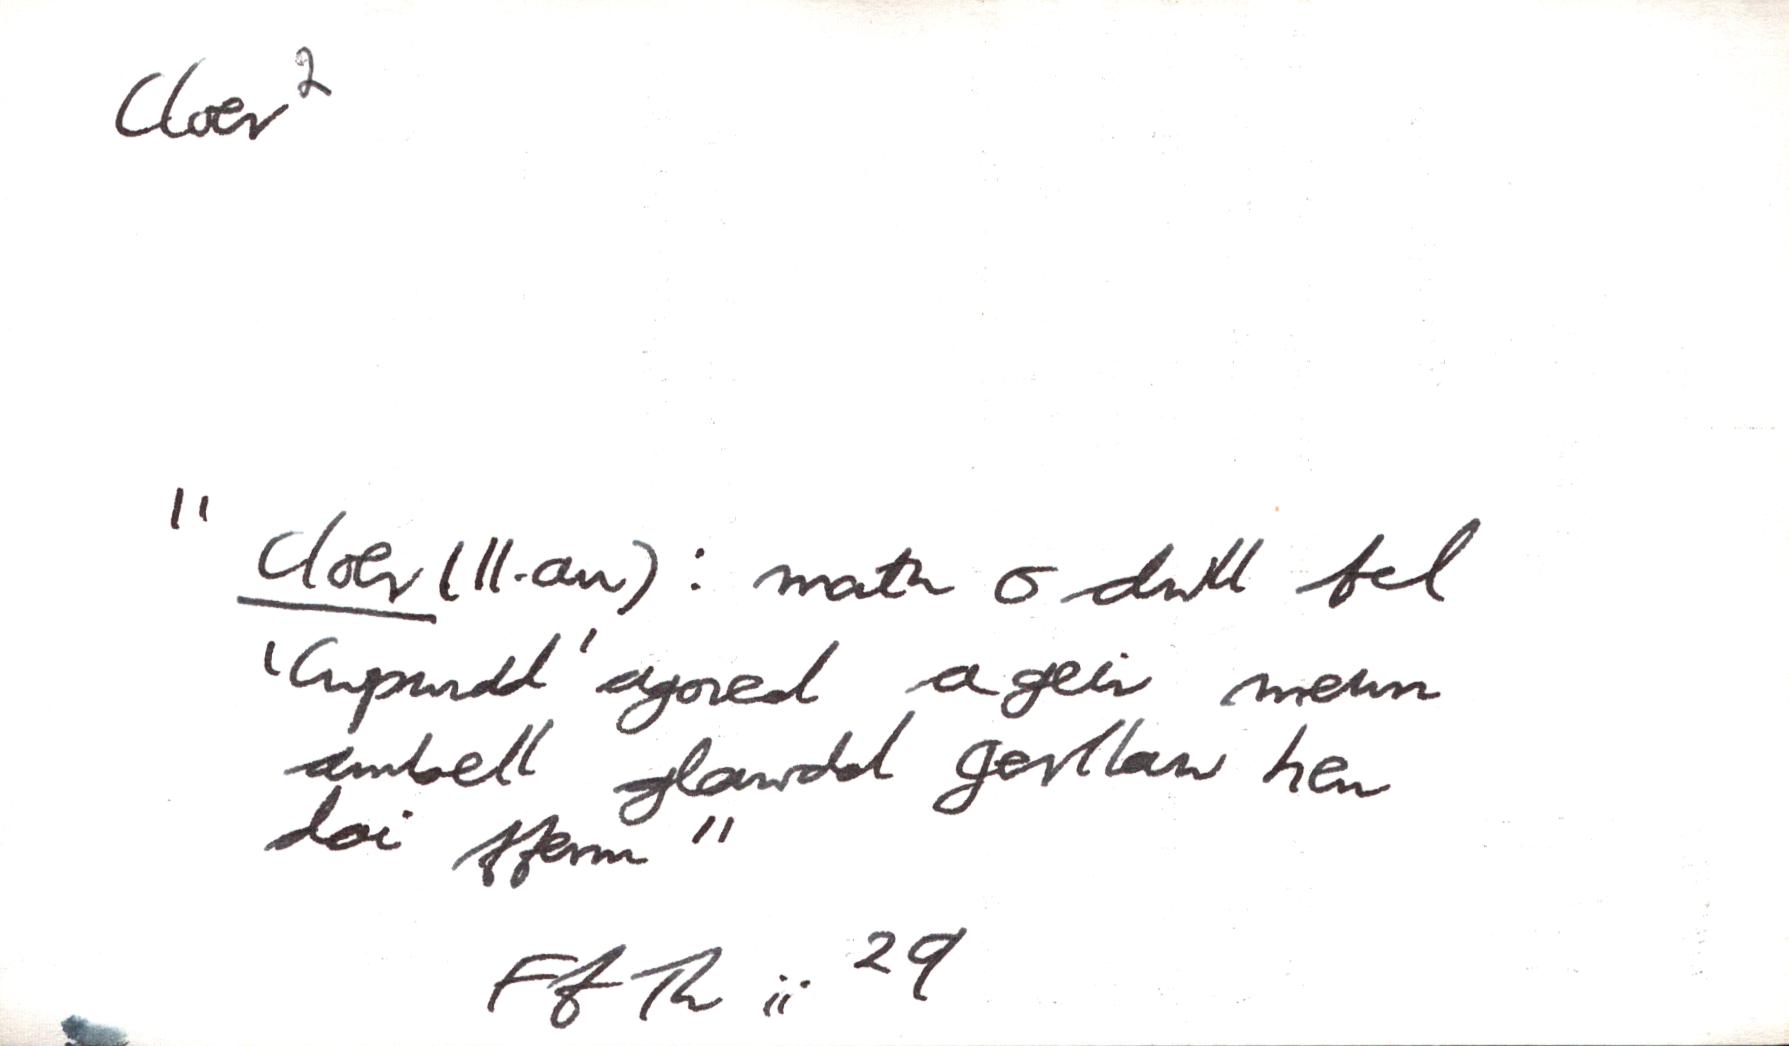 Cloer²
" Cloer (ll.au): math o dwll fel
'Cwpwrdd' agored a geir mewn
ambell glawdd gerllaw hen
dai fferm "
Ff Th ii 29